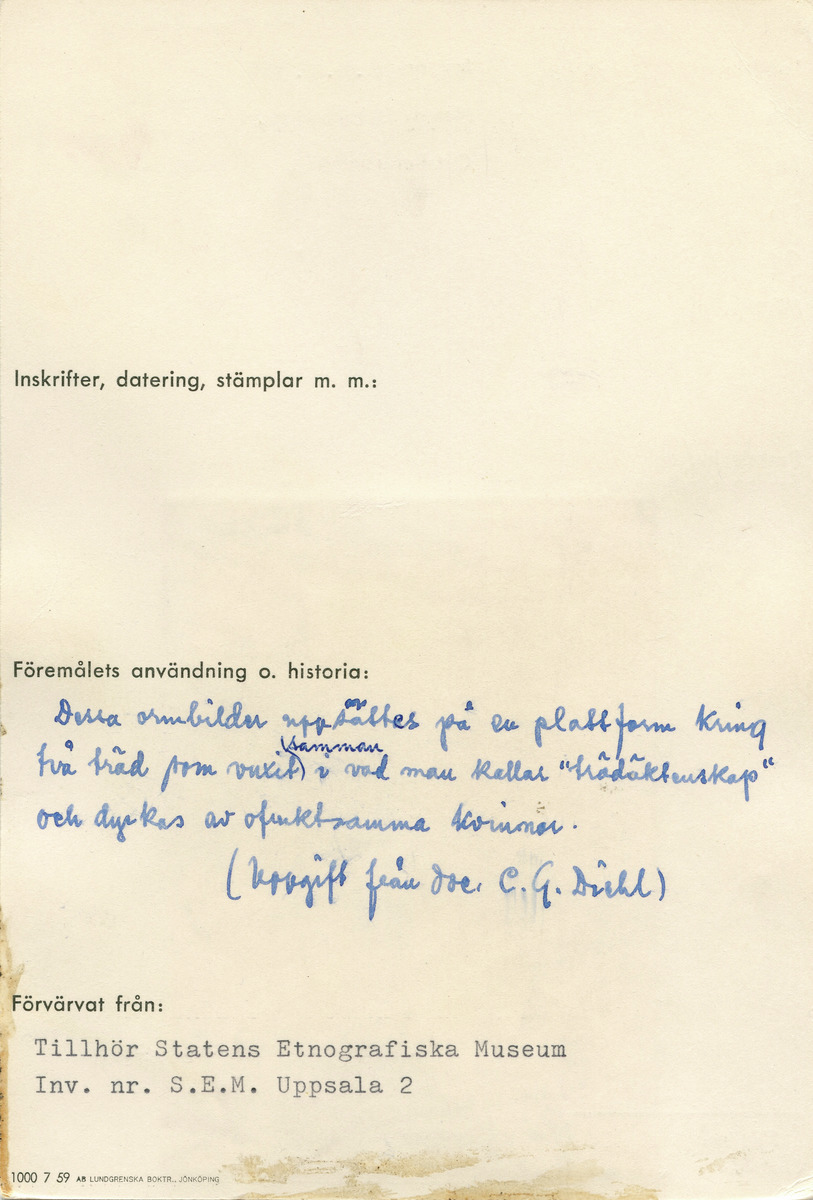 Inskrifter, datering, stämplar m. m.:
Föremålets användning o. historia:
Dessa ormbilder uppsättes på en plattform kring
två träd som vuxit (samman) i vad man kallar "trädäktenskap"
och dyrkas av ofruktsamma kvinnor.
(Uppgift från doc. C. G. Diehl)
Förvärvat från:
Tillhör Statens Etnografiska Museum
Inv. nr. S.E.M. Uppsala 2
1000 7 59 AB LUNDGRENSKA BOKTR., JÖNKÖPING